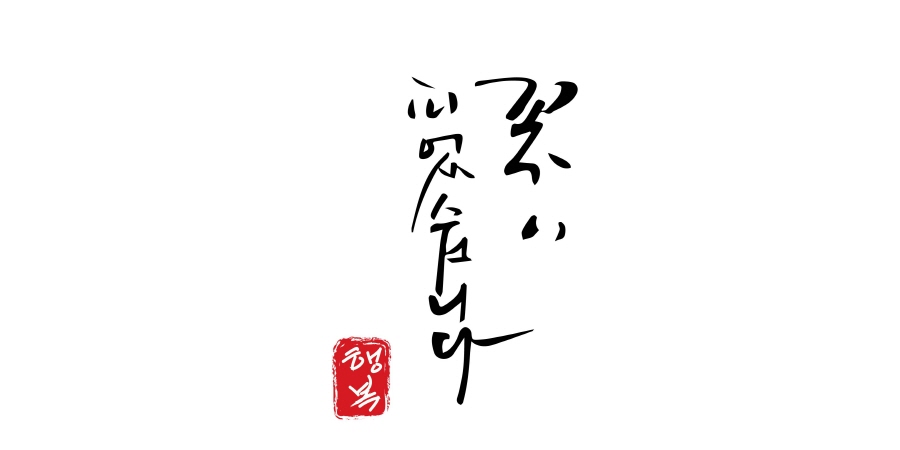 꽃이
피었습니다
행복